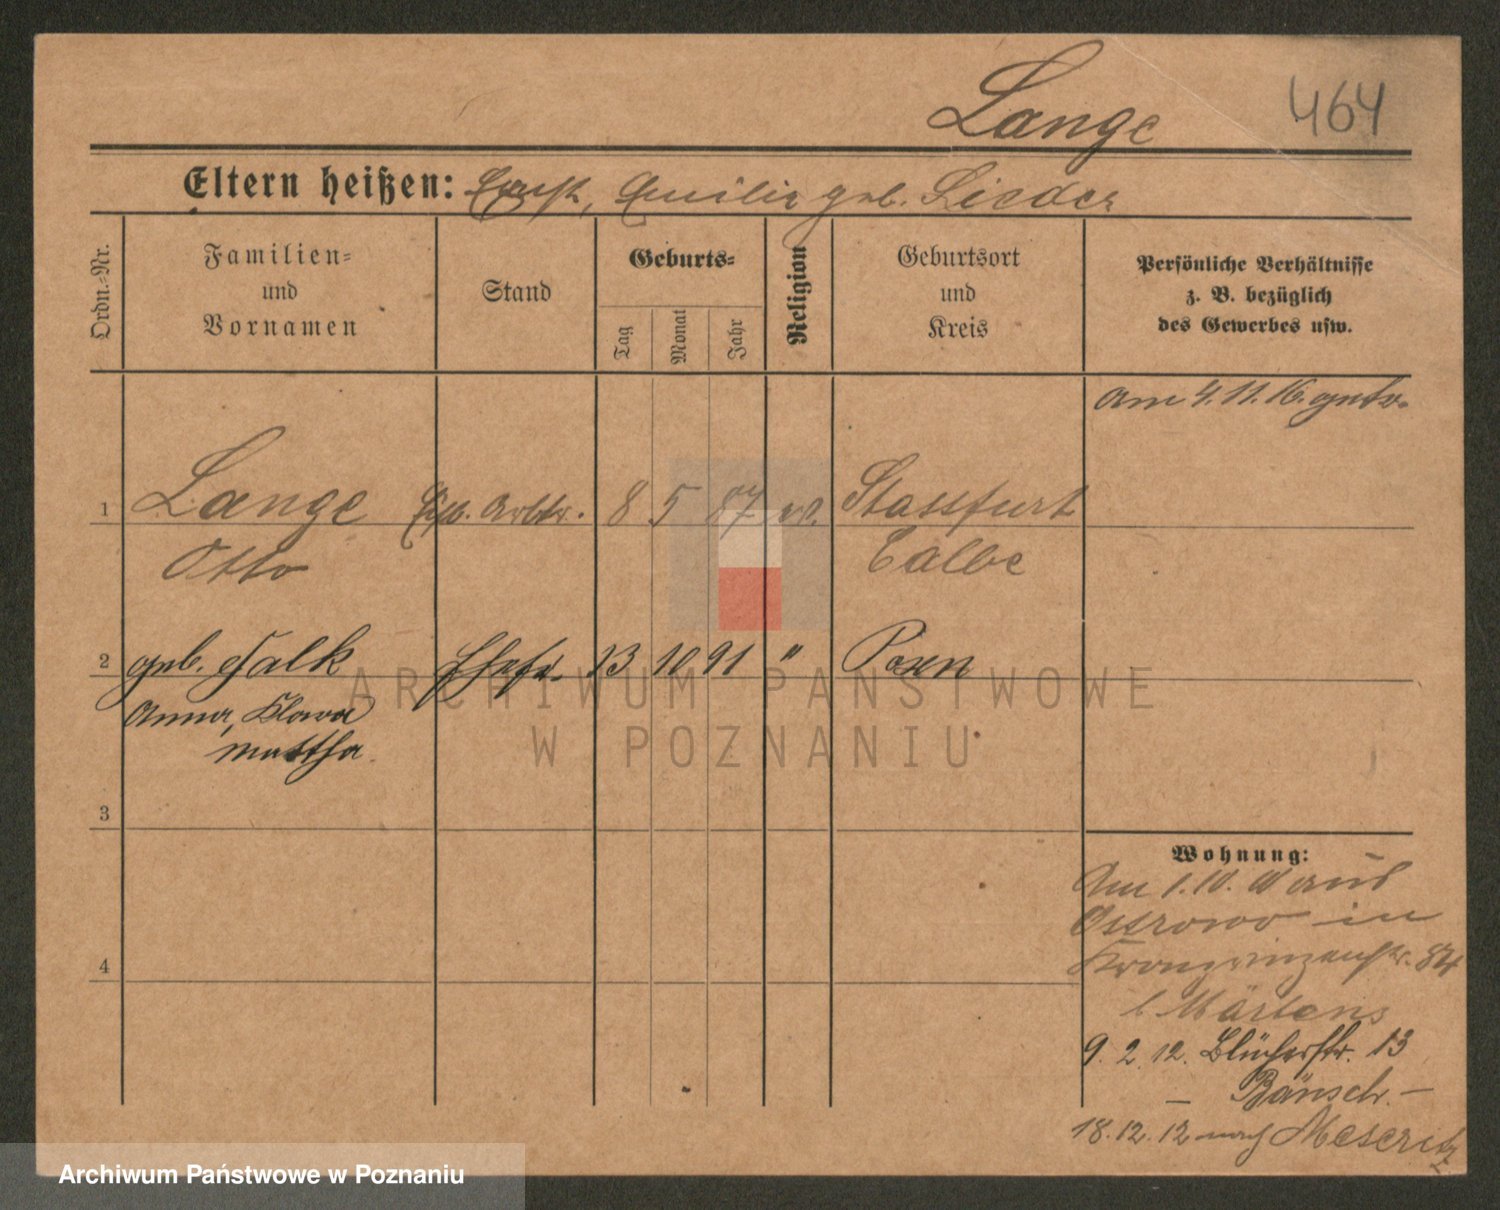 Lange
464
Eltern heißen: Ernst, Emilie geb. Lieder
Ordn.-Nr.
Familien- und Vornamen
Stand
Geburts-
Tag
Monat
Jahr
Religion
Geburtsort und Kreis
Persönliche Verhältnisse
z. B. bezüglich
des Gewerbes usw.
am 4.11.16. getr.
1 Lange Arbtr. 8 5 87 Stassfurt
Otto Calbe
2 geb. Falk Ehefr. 13 10 91 " Posen
Anna, Klara
Martha
3
4
Wohnung:
Am 1.10. aus
Ostrowo in
Kronprinzenstr. 84
b Märtens
9. 2. 12. Blücherstr. 13
– Bänsch. –
18. 12. 12 nach Meseritz
ARCHIWUM PAŃSTWOWE
W POZNANIU
Archiwum Państwowe w Poznaniu